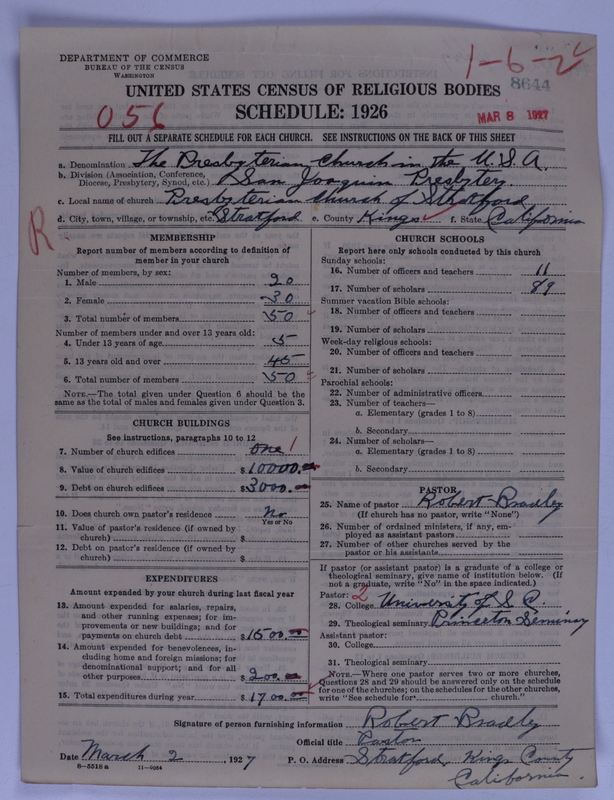 DEPARTMENT OF COMMERCE
BUREAU OF THE CENSUS
WASHINGTON
1-6-2
8644
UNITED STATES CENSUS OF RELIGIOUS BODIES
SCHEDULE: 1926
056
MAR 8 1927
FILL OUT A SEPARATE SCHEDULE FOR EACH CHURCH. SEE INSTRUCTIONS ON THE BACK OF THIS SHEET
a. Denomination The Presbyterian Church in the U.S.A.
b. Division (Association, Conference, Diocese, Presbytery, Synod, etc.) San Joaquin Presbytery
c. Local name of church Presbyterian Church of Stratford
d. City, town, village, or township, etc. Stratford e. County Kings f. State California
R
MEMBERSHIP
Report number of members according to definition of
member in your church
Number of members, by sex:
1. Male 20
2. Female 30
3. Total number of members 50
Number of members under and over 13 years old:
4. Under 13 years of age 5
5. 13 years old and over 45
6. Total number of members 50
NOTE.—The total given under Question 6 should be
the same as the total of males and females given under Question 3.
CHURCH BUILDINGS
See instructions, paragraphs 10 to 12
7. Number of church edifices one 1
8. Value of church edifices $10000.00
9. Debt on church edifices $3000.00
10. Does church own pastor's residence? No
Yes or No
11. Value of pastor's residence (if owned by
church) $
12. Debt on pastor's residence (if owned by
church) $
EXPENDITURES
Amount expended by your church during last fiscal year
13. Amount expended for salaries, repairs,
and other running expenses; for im-
provements or new buildings; and for
payments on church debt $1500.00
14. Amount expended for benevolences, in-
cluding home and foreign missions; for
denominational support; and for all
other purposes $200.00
15. Total expenditures during year $1700.00
CHURCH SCHOOLS
Report here only schools conducted by this church
Sunday schools:
16. Number of officers and teachers 11
17. Number of scholars 89
Summer vacation Bible schools:
18. Number of officers and teachers
19. Number of scholars
Week-day religious schools:
20. Number of officers and teachers
21. Number of scholars
Parochial schools:
22. Number of administrative officers
23. Number of teachers—
a. Elementary (grades 1 to 8)
b. Secondary
24. Number of scholars—
a. Elementary (grades 1 to 8)
b. Secondary
PASTOR
25. Name of pastor Robert Bradley
(If church has no pastor, write "None")
26. Number of ordained ministers, if any, em-
ployed as assistant pastors
27. Number of other churches served by the
pastor or his assistants
If pastor (or assistant pastor) is a graduate of a college or
theological seminary, give name of institution below. (If
not a graduate, write "No" in the space indicated.)
Pastor: 2
28. College University of S.C.
29. Theological seminary Princeton Seminary
Assistant pastor:
30. College
31. Theological seminary
NOTE.—Where one pastor serves two or more churches,
Questions 28 and 29 should be answered only on the schedule
for one of the churches; on the schedules for the other churches,
write "See schedule for church."
Signature of person furnishing information Robert Bradley
Official title Pastor
Date March 2, 1927 P. O. Address Stratford, Kings County
California.
8-5518 a 11-9054